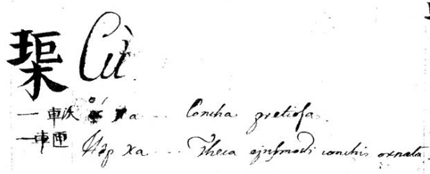 Cừ
一 車沃 ốc xa .... Concha pretiosa.
一 車匣 Hộp xa .... Theca ejusmodi conchis ornata.